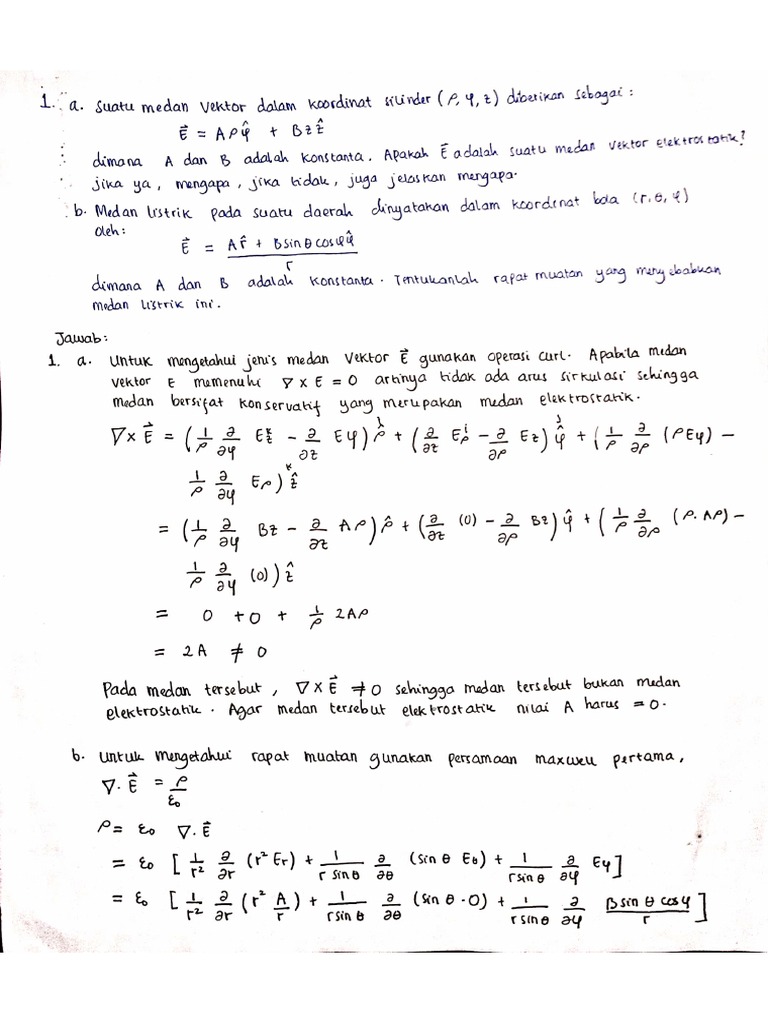 1. a. Suatu medan vektor dalam koordinat silinder (ρ, φ, z) diberikan sebagai :
E⃗ = Aρφ̂ + Bzẑ
dimana A dan B adalah konstanta. Apakah E⃗ adalah suatu medan vektor elektrostatik?
jika ya, mengapa, jika tidak, juga jelaskan mengapa.
b. Medan listrik pada suatu daerah dinyatakan dalam koordinat bola (r, θ, φ)
oleh:
E⃗ = (Ar̂ + B sin θ cos φ φ̂) / r
dimana A dan B adalah konstanta. Tentukanlah rapat muatan yang menyebabkan
medan listrik ini.
Jawab:
1. a. Untuk mengetahui jenis medan vektor E⃗ gunakan operasi curl. Apabila medan
vektor E memenuhi ∇ x E = 0 artinya tidak ada arus sirkulasi sehingga
medan bersifat konservatif yang merupakan medan elektrostatik.
∇ x E⃗ = (1/ρ ∂/∂φ Ez − ∂/∂z Eφ) ρ̂ + (∂/∂z Eρ − ∂/∂ρ Ez) φ̂ + (1/ρ ∂/∂ρ (ρEφ) −
1/ρ ∂/∂φ Eρ) ẑ
= (1/ρ ∂/∂φ Bz − ∂/∂z Aρ) ρ̂ + (∂/∂z (0) − ∂/∂ρ Bz) φ̂ + (1/ρ ∂/∂ρ (ρ. Aρ) −
1/ρ ∂/∂φ (0)) ẑ
= 0 + 0 + 1/ρ 2Aρ
= 2A ≠ 0
Pada medan tersebut, ∇ x E⃗ ≠ 0 sehingga medan tersebut bukan medan
elektrostatik. Agar medan tersebut elektrostatik nilai A harus = 0.
b. Untuk mengetahui rapat muatan gunakan persamaan maxwell pertama,
∇ . E⃗ = ρ/ε0
ρ = ε0 ∇ . E⃗
= ε0 [1/r² ∂/∂r (r² Er) + 1/(r sin θ) ∂/∂θ (sin θ Eθ) + 1/(r sin θ) ∂/∂φ Eφ]
= ε0 [1/r² ∂/∂r (r² A/r) + 1/(r sin θ) ∂/∂θ (sin θ . 0) + 1/(r sin θ) ∂/∂φ (B sin θ cos φ)/r]